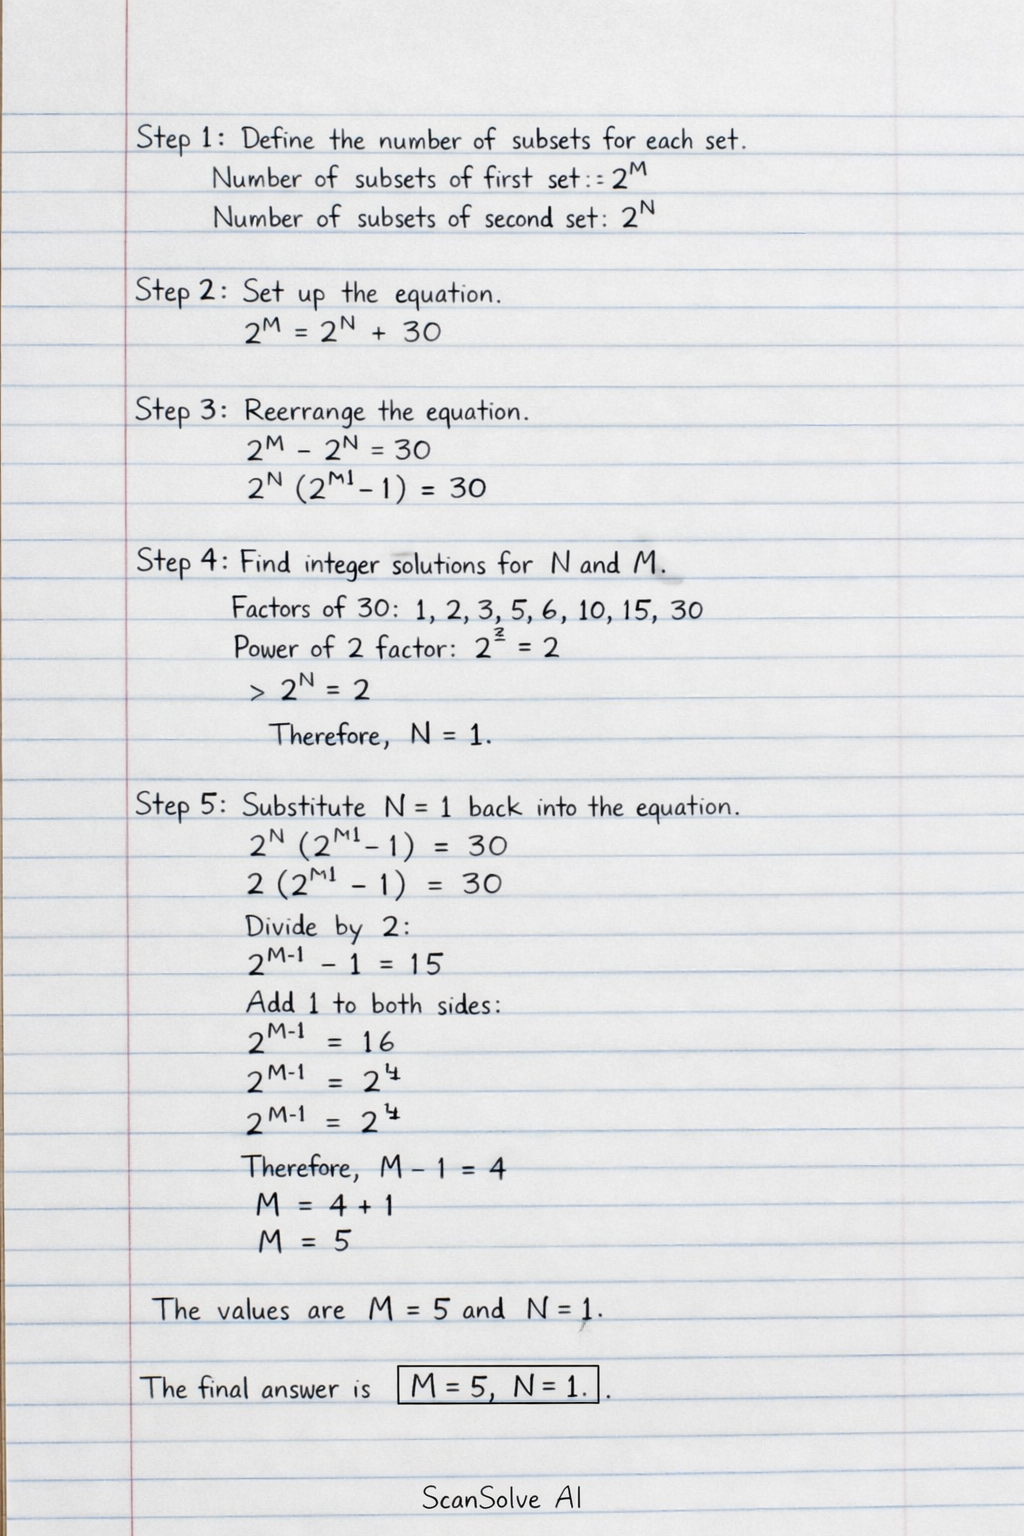 Step 1: Define the number of subsets for each set.
Number of subsets of first set:: 2^M
Number of subsets of second set: 2^N
Step 2: Set up the equation.
2^M = 2^N + 30
Step 3: Reerrange the equation.
2^M - 2^N = 30
2^N (2^M1 - 1) = 30
Step 4: Find integer solutions for N and M.
Factors of 30: 1, 2, 3, 5, 6, 10, 15, 30
Power of 2 factor: 2 = 2
> 2^N = 2
Therefore, N = 1.
Step 5: Substitute N = 1 back into the equation.
2^N (2^M1 - 1) = 30
2 (2^M1 - 1) = 30
Divide by 2:
2^M-1 - 1 = 15
Add 1 to both sides:
2^M-1 = 16
2^M-1 = 2^4
2^M-1 = 2^4
Therefore, M - 1 = 4
M = 4 + 1
M = 5
The values are M = 5 and N = 1.
The final answer is M = 5, N = 1. .
ScanSolve AI